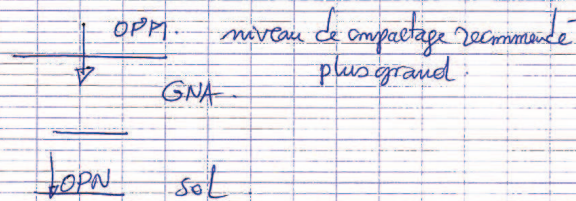 OPM. niveau de compactage recommandé
plus grand.
GNA.
OPN sol